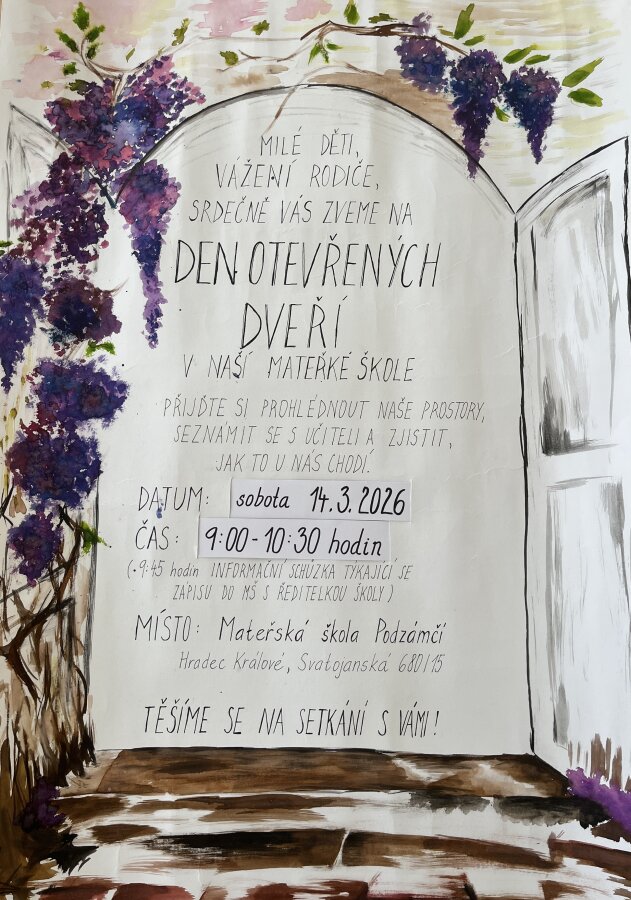 MILÉ DĚTI,
VÁŽENÍ RODIČE,
SRDEČNĚ VÁS ZVEME NA
DEN OTEVŘENÝCH
DVEŘÍ
V NAŠÍ MATEŘKÉ ŠKOLE
PŘIJĎTE SI PROHLÉDNOUT NAŠE PROSTORY,
SEZNÁMIT SE S UČITELI A ZJISTIT,
JAK TO U NÁS CHODÍ.
DATUM: sobota 14.3.2026
ČAS: 9:00-10:30 hodin
(• 9:45 hodin INFORMAČNÍ SCHŮZKA TÝKAJÍCÍ SE
ZÁPISU DO MŠ S ŘEDITELKOU ŠKOLY)
MÍSTO: Mateřská škola Podzámčí
Hradec Králové, Svatojanská 680/15
TĚŠÍME SE NA SETKÁNÍ S VÁMI!